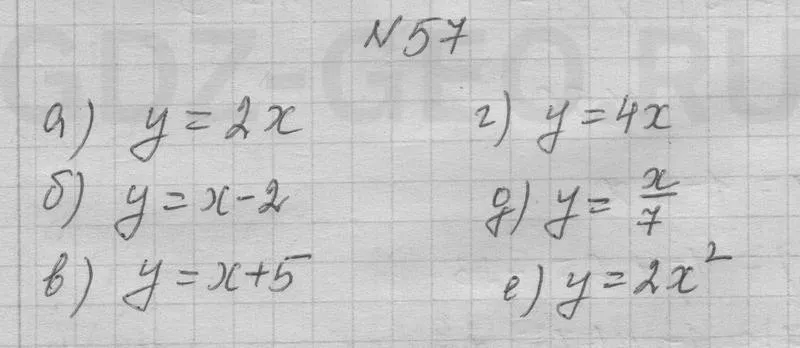 N57
а) y = 2x
б) y = x - 2
в) y = x + 5
г) y = 4x
д) y = x/7
е) y = 2x²
GDZ-GEO.RU